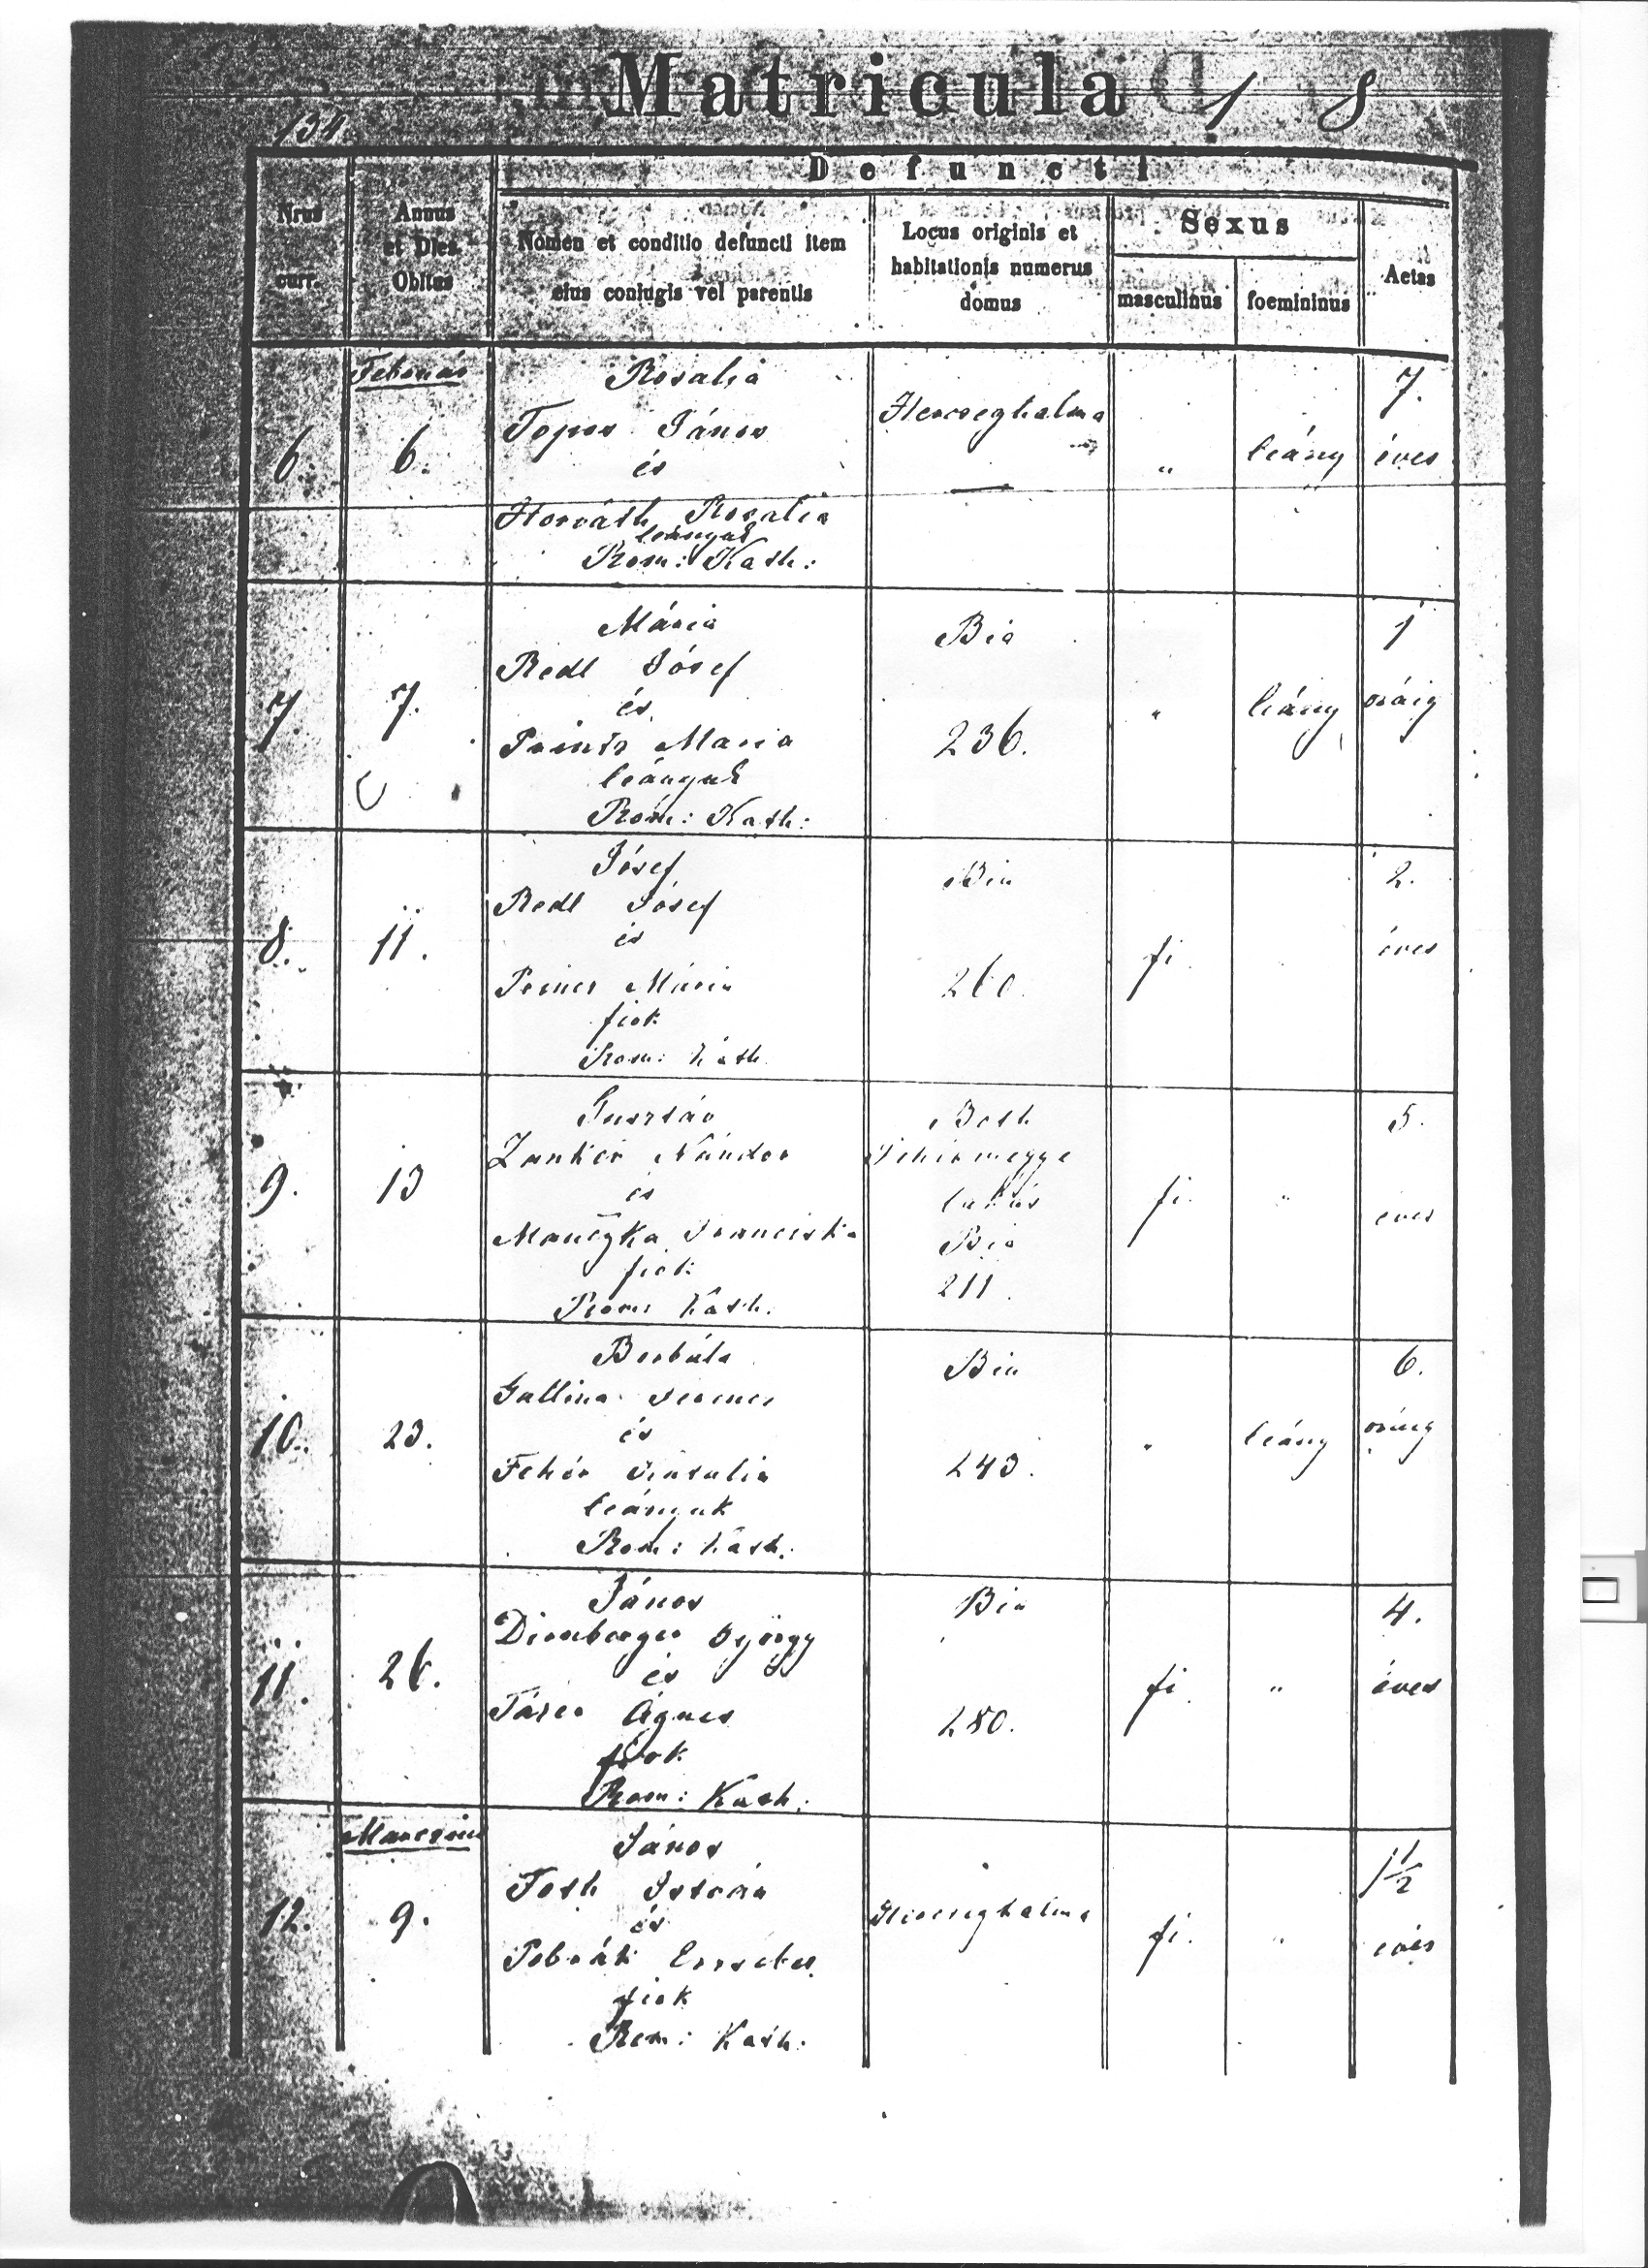 Matricula
1 8
134
Defuncti
Nrus
curr.
Annus
et Dies
Obitus
Nomen et conditio defuncti item
eius coniugis vel parentis
Locus originis et
habitationis numerus
domus
Sexus
masculinus
foemininus
Aetas
Február
6.
6.
Rosalia
János
és
Horváth Rosalia
leányuk
Rom: Kath:
Herczeghalma
"
leány
7.
éves
7
7.
Mária
Redl Jósef
és
Maria
leányuk
Róm: Kath:
Bia
236.
"
leány
1
óráig
8.
11.
Jósef
Redl Jósef
és
Mária
fiok
Rom: Kath
Bia
260.
fi
2.
éves
9.
13
Gusztáv
Nándor
és
Franciska
fiok
Rom: Kath.
Both
Fehérmegye
lakás
Bia
211.
fi.
"
5.
éves
10.
23.
Borbála
Gallina Ferencz
és
Fehér
leányuk
Rom: Kath.
Bia
243.
"
leány
6.
óráig
11.
26.
János
György
és
Ágnes
fiok
Rom: Kath.
Bia
280.
fi
"
4.
éves
Marczius
12.
9.
János
Toth István
és
Erzsébet
fiok
Rom: Kath:
Herczeghalma
fi.
"
1 1/2
éves